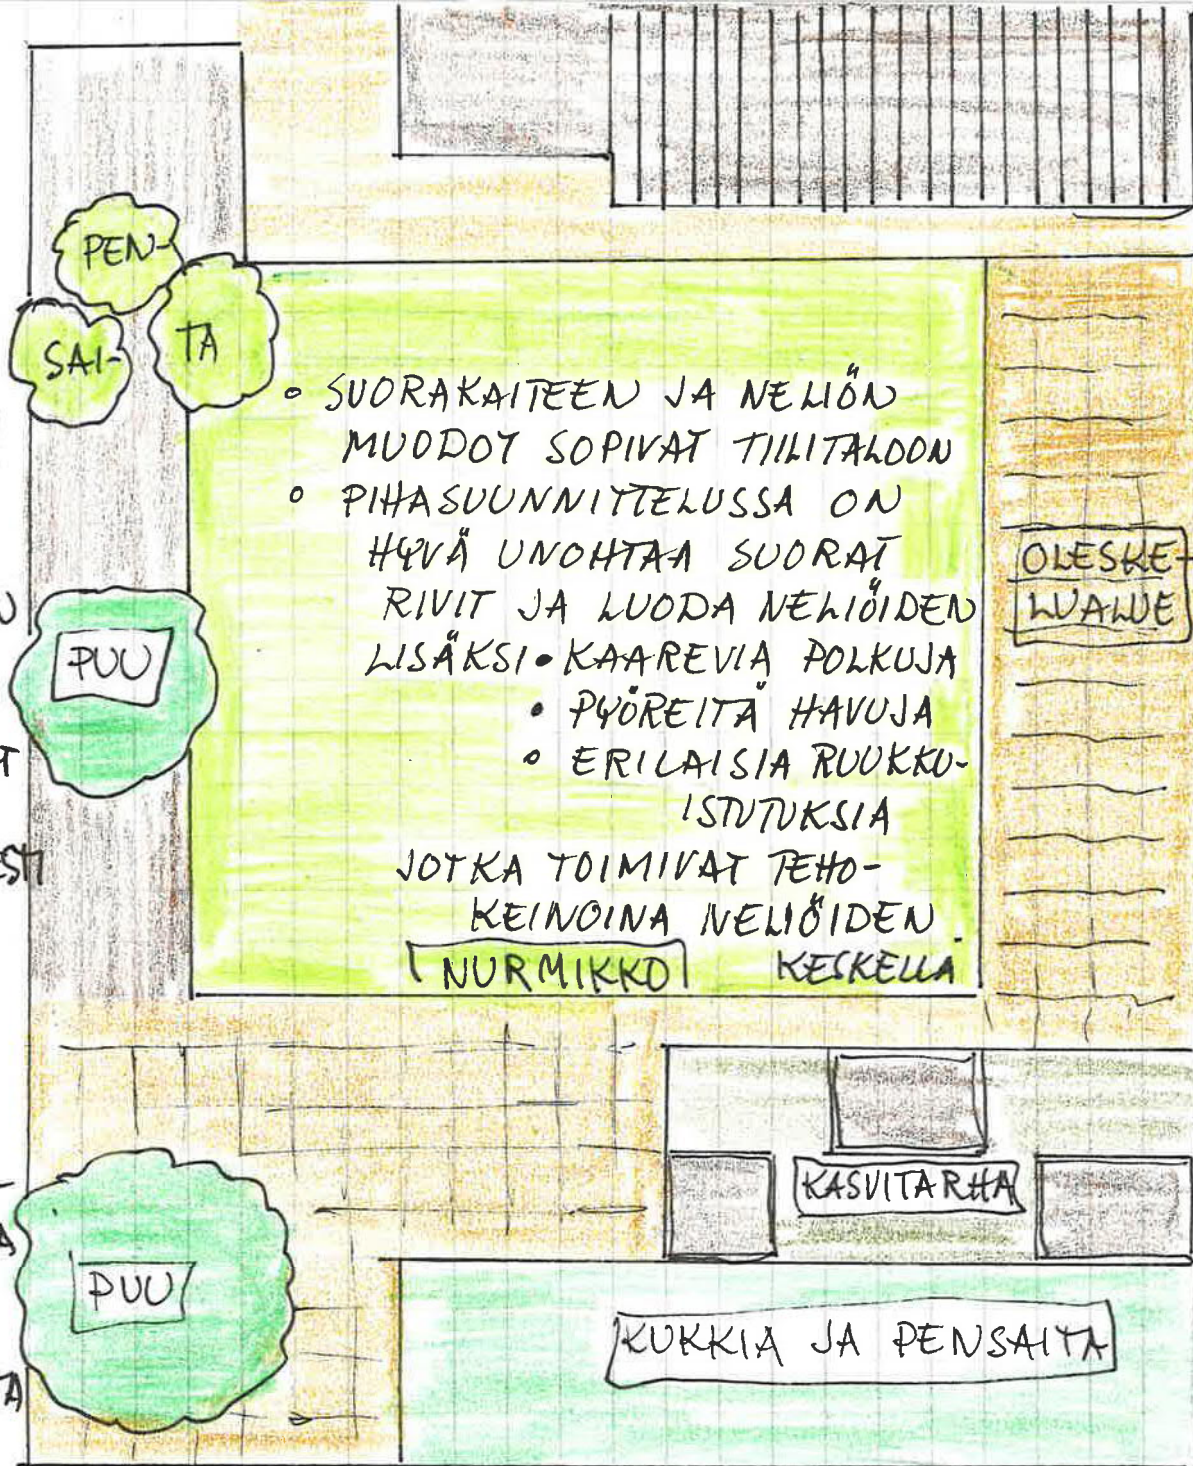 PEN-
SAI-
TA
• SUORAKAITEEN JA NELIÖN
MUODOT SOPIVAT TIILITALOON
• PIHASUUNNITTELUSSA ON
HYVÄ UNOHTAA SUORAT
RIVIT JA LUODA NELIÖIDEN
LISÄKSI • KAAREVIA POLKUJA
• PYÖREITÄ HAVUJA
• ERILAISIA RUUKKU-
ISTUTUKSIA
JOTKA TOIMIVAT TEHO-
KEINOINA NELIÖIDEN
KESKELLÄ.
NURMIKKO
OLESKE-
LUALUE
PUU
KASVITARHA
PUU
KUKKIA JA PENSAITA